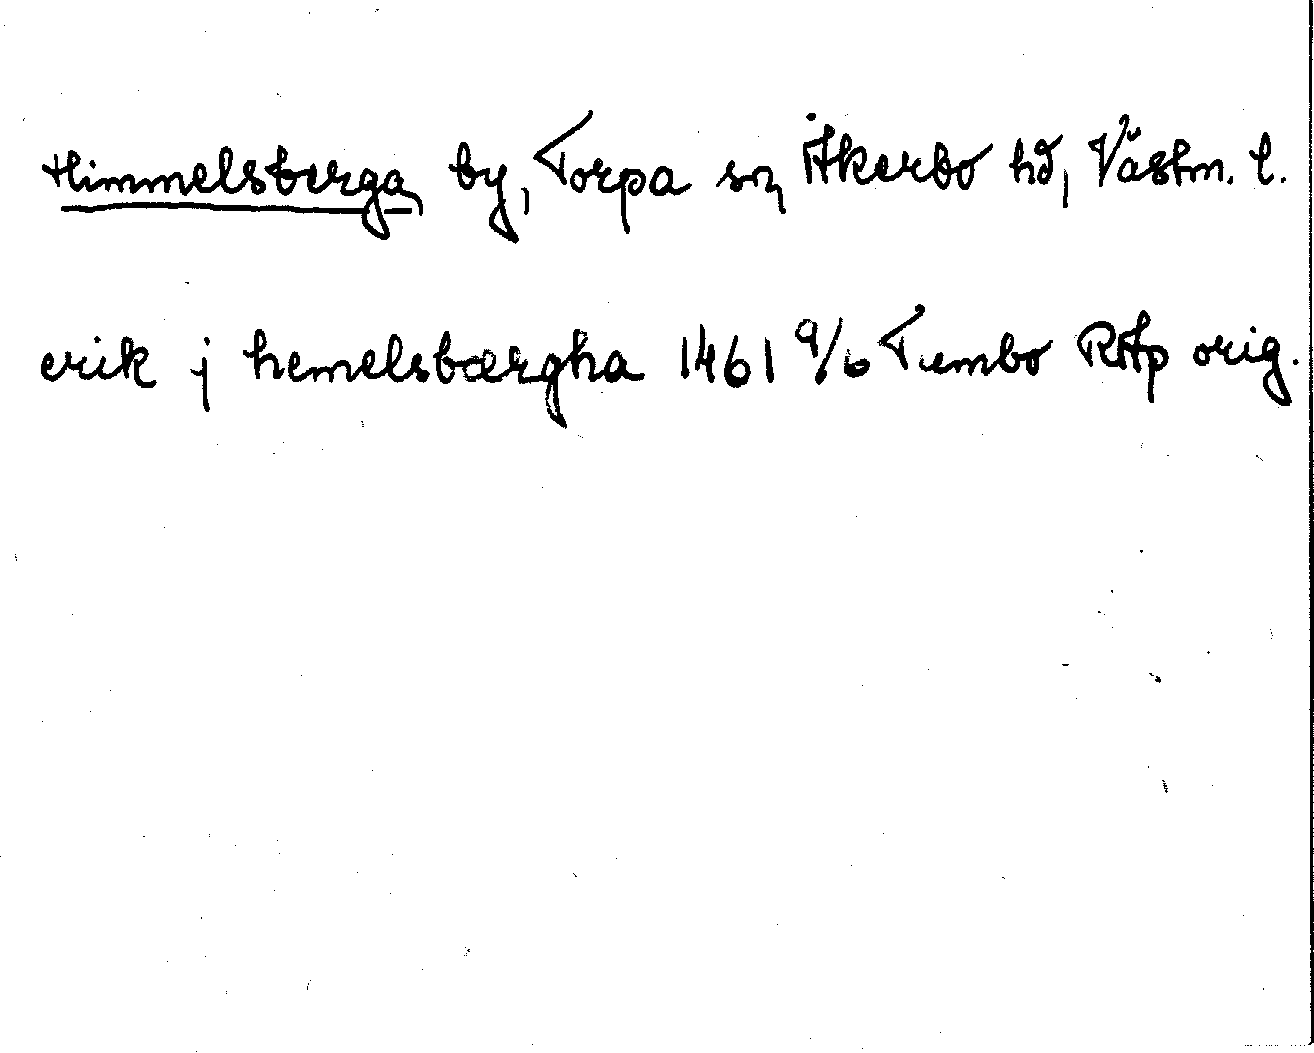 Himmelsberga by, Torpa sn, Åkerbo hd, Västm. l.
erik j hemelsbærgha 1461 9/6 Tumbo RAp orig.